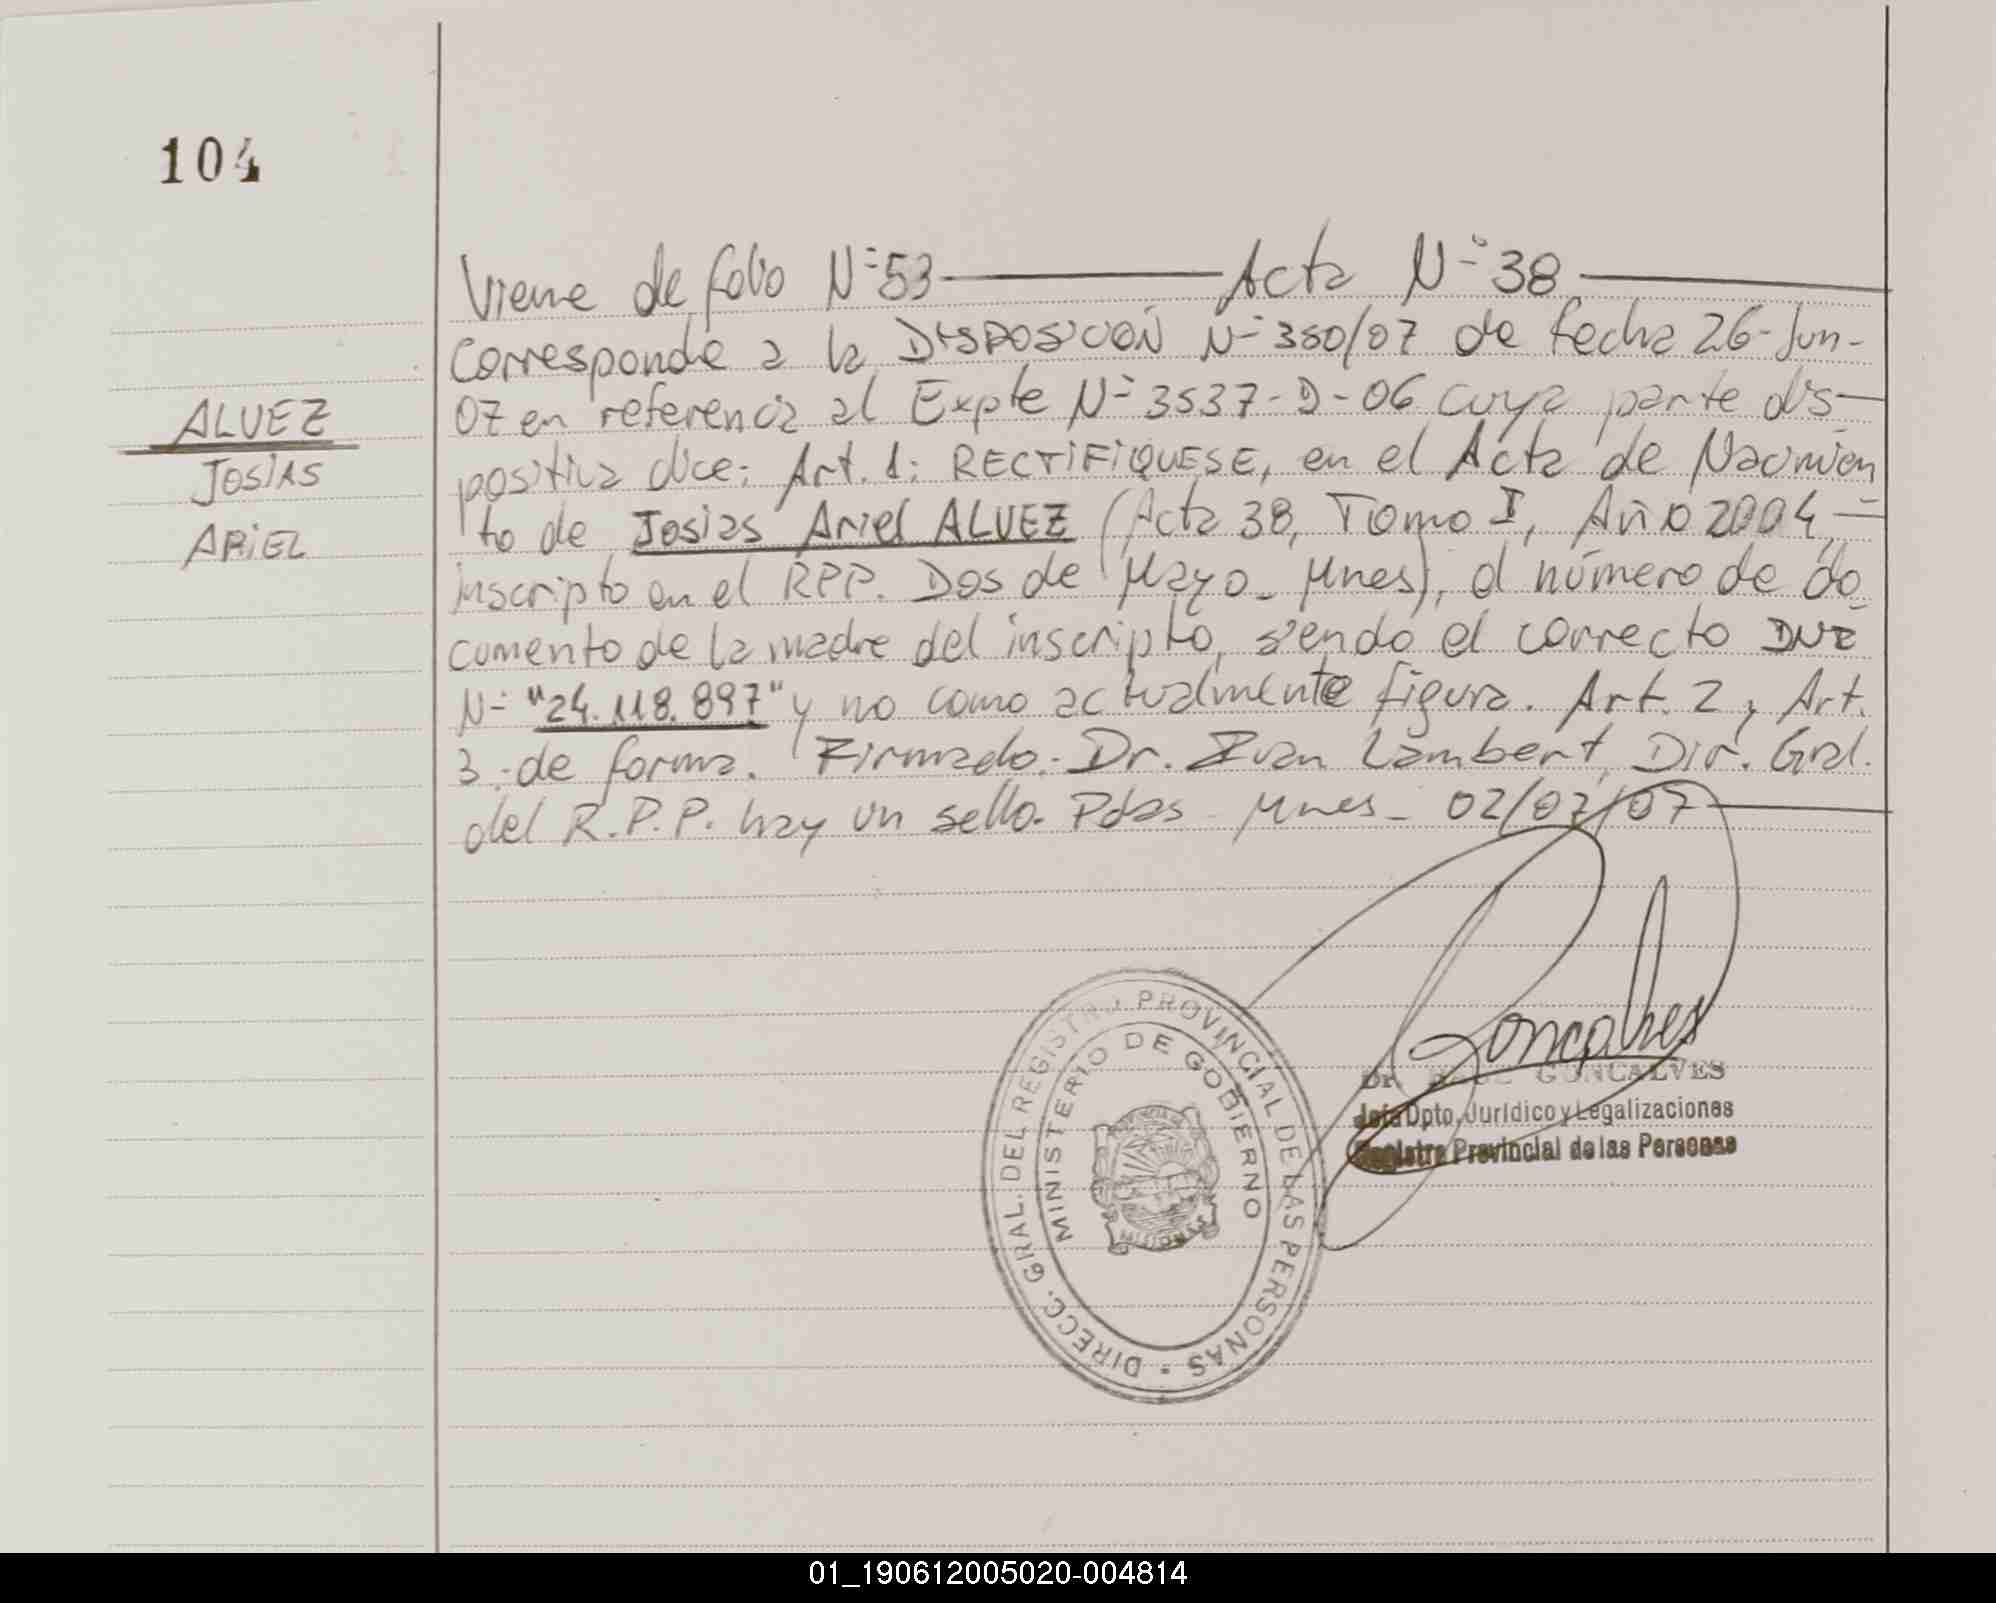 104
ALVEZ
JOSIAS
ARIEL
Viene de folio N° 53 — Acta N° 38 —
Corresponde a la DISPOSICIÓN N° 350/07 de fecha 26-Jun-
07 en referencia al Expte N° 3537-D-06 cuya parte dis—
positiva dice: Art. 1: RECTIFIQUESE, en el Acta de Nacimien
to de Josias Ariel ALVEZ (Acta 38, Tomo I, Año 2004, —
inscripto en el RPP. Dos de Mayo - Mnes), el número de do
cumento de la madre del inscripto, siendo el correcto DNI
N° "24.118.897" y no como actualmente figura. Art. 2 y Art.
3 - de forma. Firmado: Dr. Ivan Lambert, Dir. Gral.
del R.P.P. hay un sello. Pdas - Mnes - 02/07/07 —
Goncalves
DIRECC. GRAL. DEL REGISTRO PROVINCIAL DE LAS PERSONAS
MINISTERIO DE GOBIERNO
MISIONES
Dr. GONCALVES
Jefe Dpto. Jurídico y Legalizaciones
Registro Provincial de las Personas
01_190612005020-004814